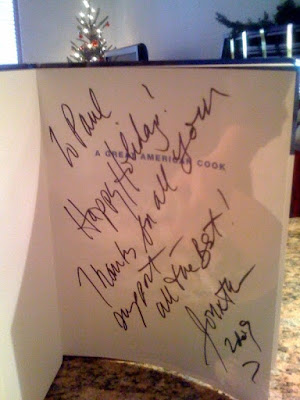 To Paul
Happy Holidays!
A GREAT AMERICAN COOK
Thanks for all your
support –
all the best!
Jonathan
2009